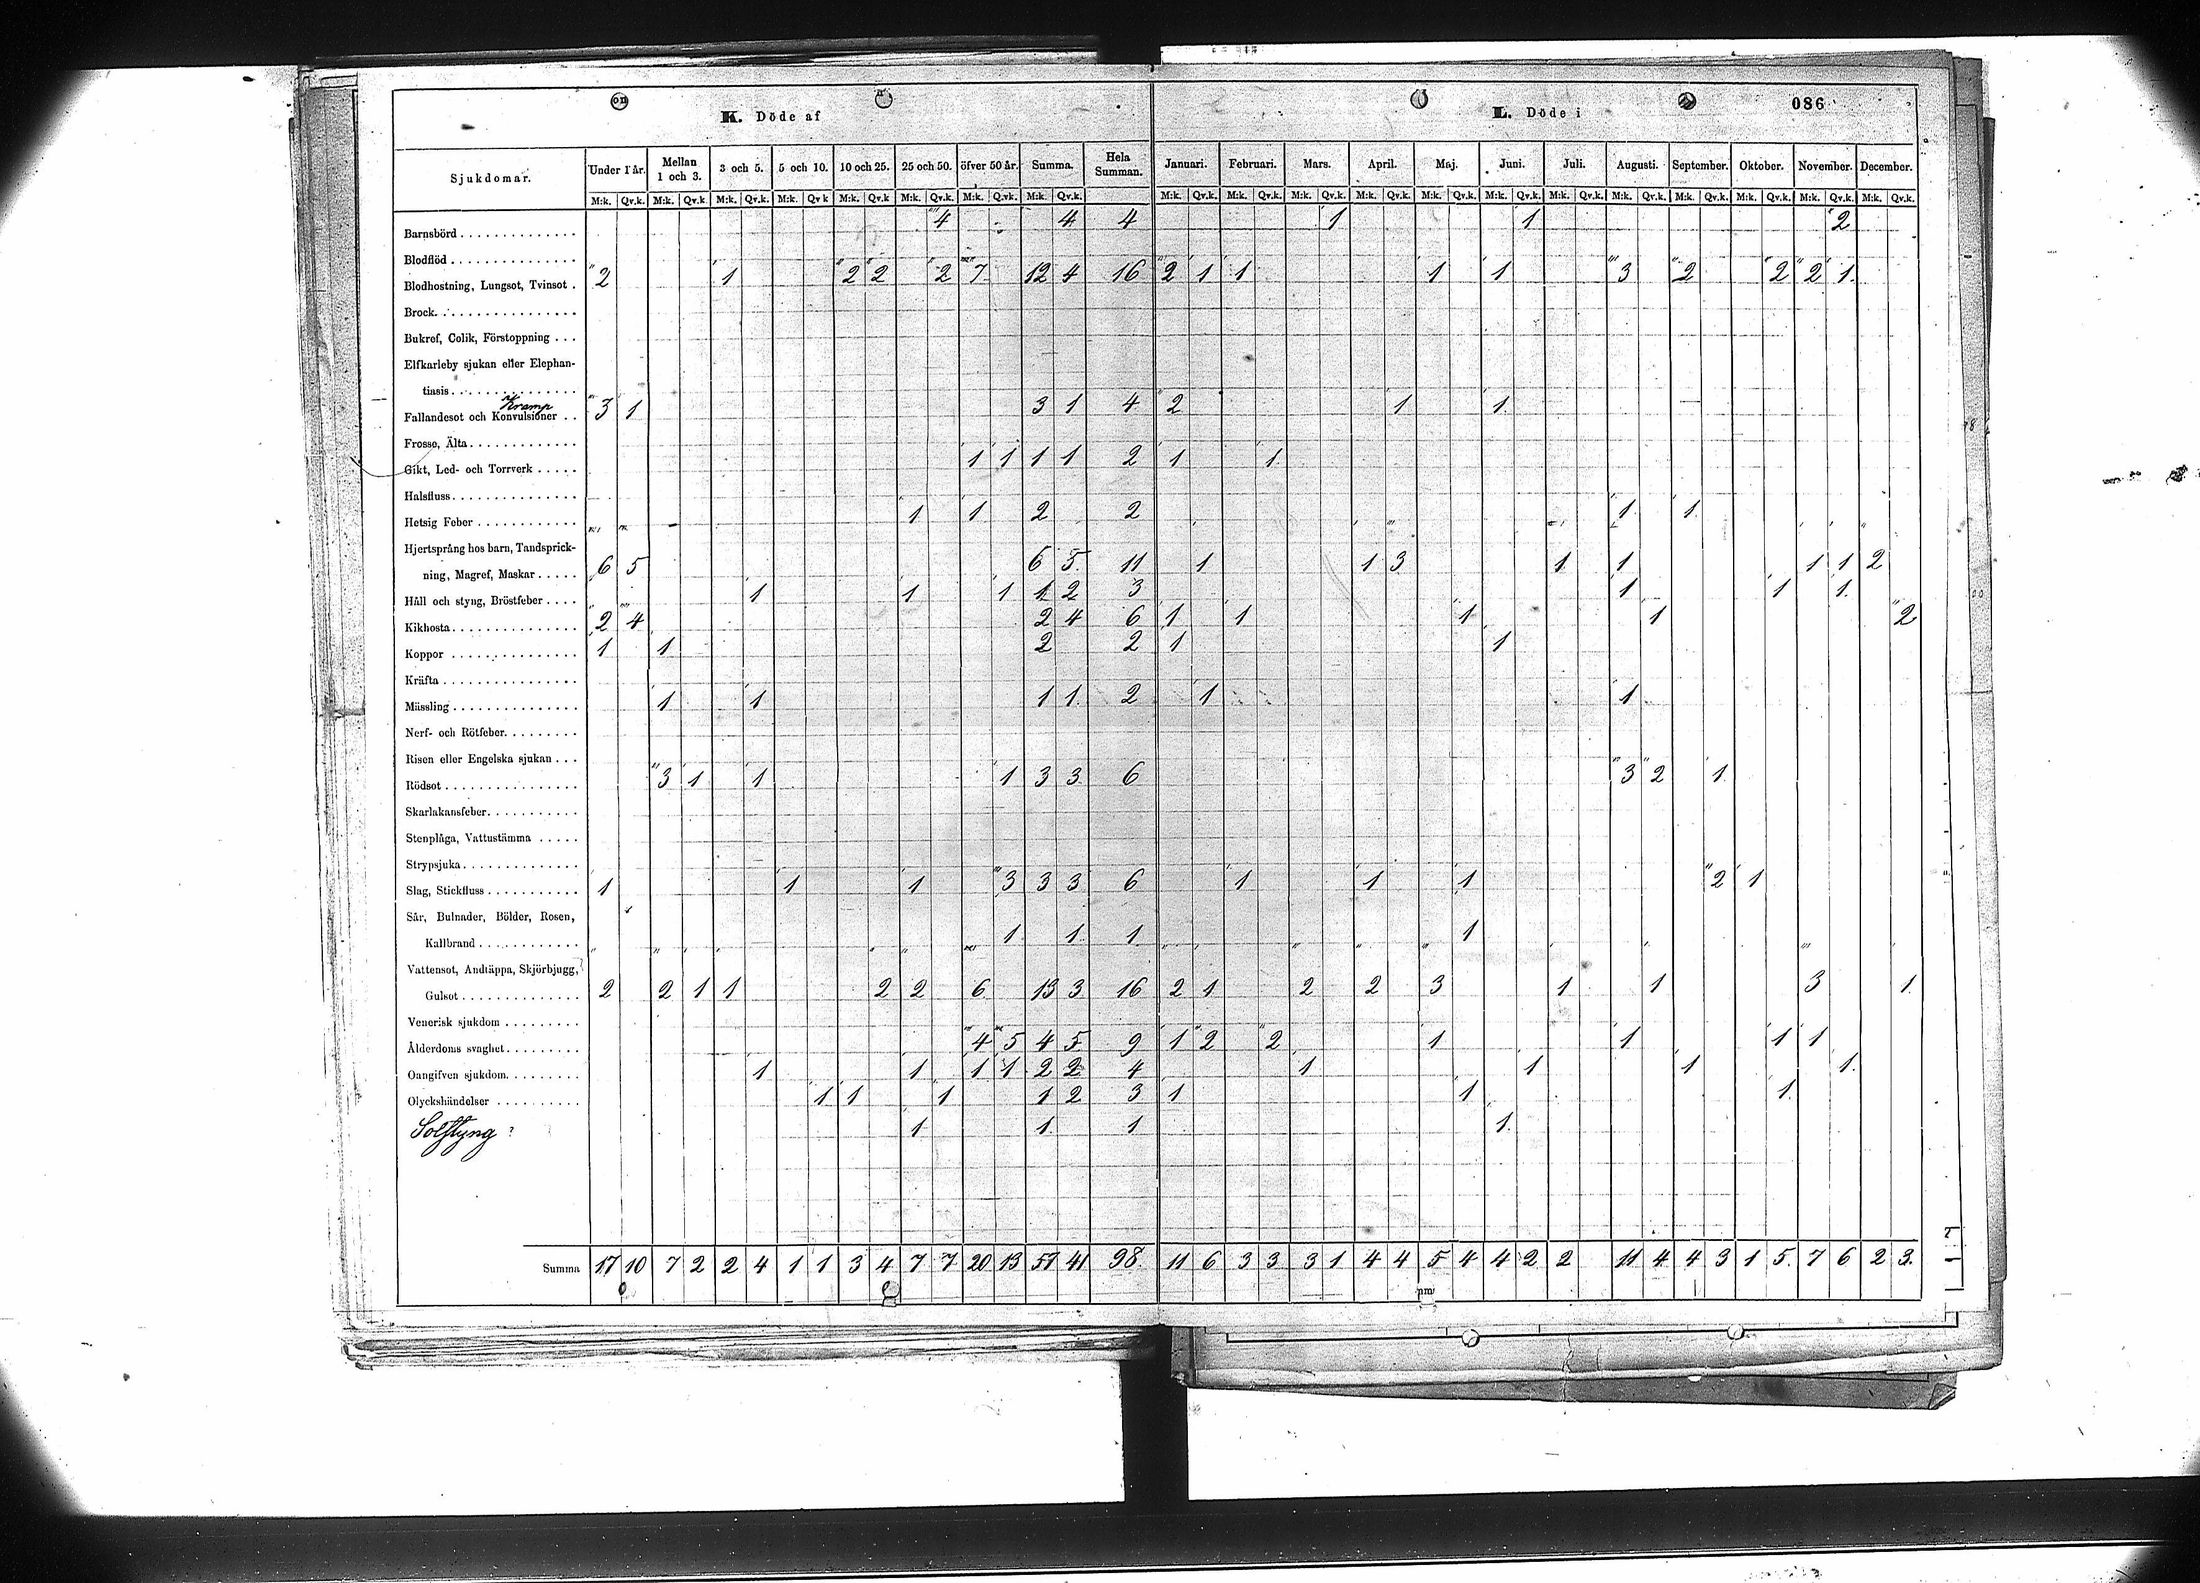 086
K. Döde af L. Döde i
Sjukdomar. Under 1 år. Mellan 1 och 3. 3 och 5. 5 och 10. 10 och 25. 25 och 50. öfver 50 år. Summa. Hela Summan. Januari. Februari. Mars. April. Maj. Juni. Juli. Augusti. September. Oktober. November. December.
M:k. Qv.k. M:k. Qv.k. M:k. Qv.k. M:k. Qv k M:k. Qv.k M:k. Qv.k. M:k. Qv.k. M:k. Qv.k. M:k. Qv.k. M:k. Qv.k. M:k. Qv.k. M:k. Qv.k. M:k. Qv.k. M:k. Qv.k. M:k. Qv.k. M:k. Qv.k. M:k. Qv.k. M:k. Qv.k. M:k. Qv.k. M:k. Qv.k.
Barnsbörd 4 4 4 1 1 2
Blodflöd
Blodhostning, Lungsot, Tvinsot 2 1 2 2 2 7 12 4 16 2 1 1 1 1 3 2 2 2 1
Brock
Bukref, Colik, Förstoppning
Elfkarleby sjukan eller Elephan-
tiasis
Kramp
Fallandesot och Konvulsioner 3 1 3 1 4 2 1 1
Frosse, Älta
Gikt, Led- och Torrverk 1 1 1 1 2 1 1
Halsfluss
Hetsig Feber 1 1 2 2 1 1
Hjertsprång hos barn, Tandsprick-
ning, Magref, Maskar 6 5 6 5 11 1 1 3 1 1 1 1 2
Håll och styng, Bröstfeber 1 1 1 1 2 3 1 1 1
Kikhosta 2 4 2 4 6 1 1 1 1 2
Koppor 1 1 2 2 1 1
Kräfta
Mässling 1 1 1 1 2 1 1
Nerf- och Rötfeber
Risen eller Engelska sjukan
Rödsot 3 1 1 1 3 3 6 3 2 1
Skarlakansfeber
Stenplåga, Vattustämma
Strypsjuka
Slag, Stickfluss 1 1 1 3 3 3 6 1 1 1 2 1
Sår, Bulnader, Bölder, Rosen,
Kallbrand 1 1 1 1
Vattensot, Andtäppa, Skjörbjugg,
Gulsot 2 2 1 1 2 2 6 13 3 16 2 1 2 2 3 1 1 3 1
Venerisk sjukdom
Ålderdoms svaghet 4 5 4 5 9 1 2 2 1 1 1 1
Oangifven sjukdom 1 1 1 1 2 2 4 1 1 1 1
Olyckshändelser 1 1 1 1 2 3 1 1 1
Solstyng 1 1 1 1
Summa 17 10 7 2 2 4 1 1 3 4 7 7 20 13 57 41 98 11 6 3 3 3 1 4 4 5 4 4 2 2 11 4 4 3 1 5 7 6 2 3